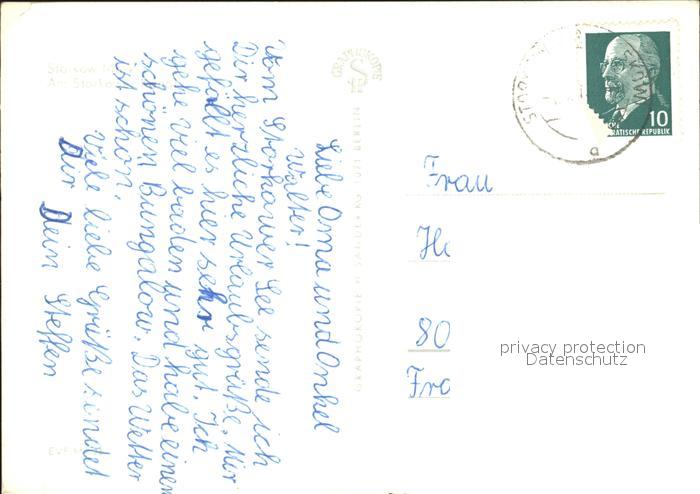 Liebe Oma und Onkel
Walter!
Vom Storkower See sende ich
Dir herzliche Urlaubsgrüße. Mir
gefällt es hier sehr gut. Ich
gehe viel baden und habe einen
schönen Bungalow. Das Wetter
ist schön.
Viele liebe Grüße sindet
Dir Dein Steffen
Storkow
Am Storko
GRAPHOKOPIE
GRAPHOKOPIE H. SANDER KG 1071 BERLIN
STORKOW
a
10
RATISCHE REPUBLIK
Frau
He
80
Fra
privacy protection
Datenschutz